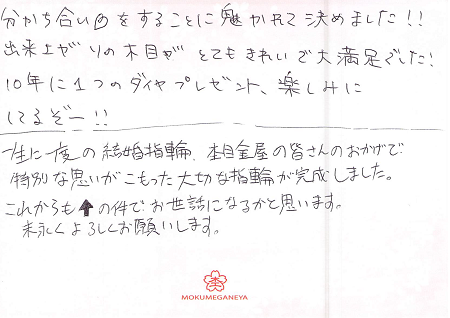 分かち合いの をすることに魅かれて決めました!!
出来上がりの木目がとてもきれいで大満足でした!
10年に1つのダイヤプレゼント、楽しみに
してるぞー!!
一生に一度の結婚指輪、杢目金屋の皆さんのおかげで
特別な思いがこもった大切な指輪が完成しました。
これからも↑の件でお世話になるかと思います。
末永くよろしくお願いします。
MOKUMEGANEYA